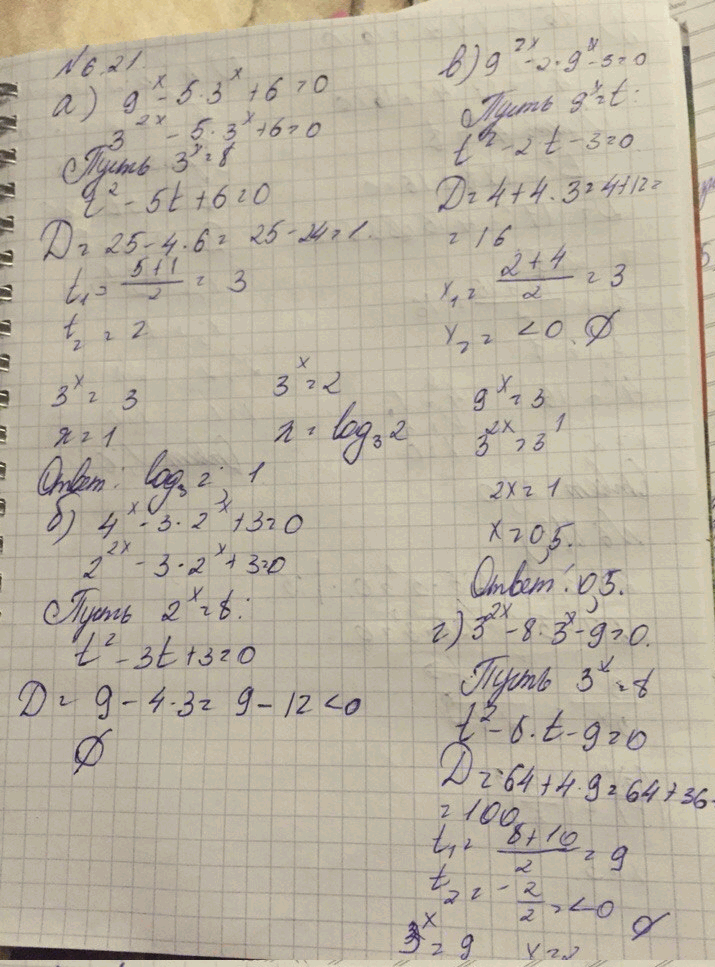 N 6.21.
а) 9^x - 5·3^x + 6 = 0
3^2x - 5·3^x + 6 = 0
Пусть 3^x = t
t^2 - 5t + 6 = 0
D = 25 - 4·6 = 25 - 24 = 1.
t1 = (5+1)/2 = 3
t2 = 2
3^x = 3    3^x = 2
x = 1    x = log3 2
Ответ: log3 2; 1
б) 4^x - 3·2^x + 3 = 0
2^2x - 3·2^x + 3 = 0
Пусть 2^x = t:
t^2 - 3t + 3 = 0
D = 9 - 4·3 = 9 - 12 < 0
∅
в) 9^2x - 2·9^x - 3 = 0
Пусть 9^x = t:
t^2 - 2t - 3 = 0
D = 4 + 4·3 = 4 + 12 =
= 16
x1 = (2+4)/2 = 3
x2 = < 0 ∅
9^x = 3
3^2x = 3^1
2x = 1
x = 0,5.
Ответ: 0,5.
г) 3^2x - 8·3^x - 9 = 0.
Пусть 3^x = t
t^2 - 8·t - 9 = 0
D = 64 + 4·9 = 64 + 36 =
= 100
t1 = (8+10)/2 = 9
t2 = -2/2 = < 0 ∅
3^x = 9    x = 2